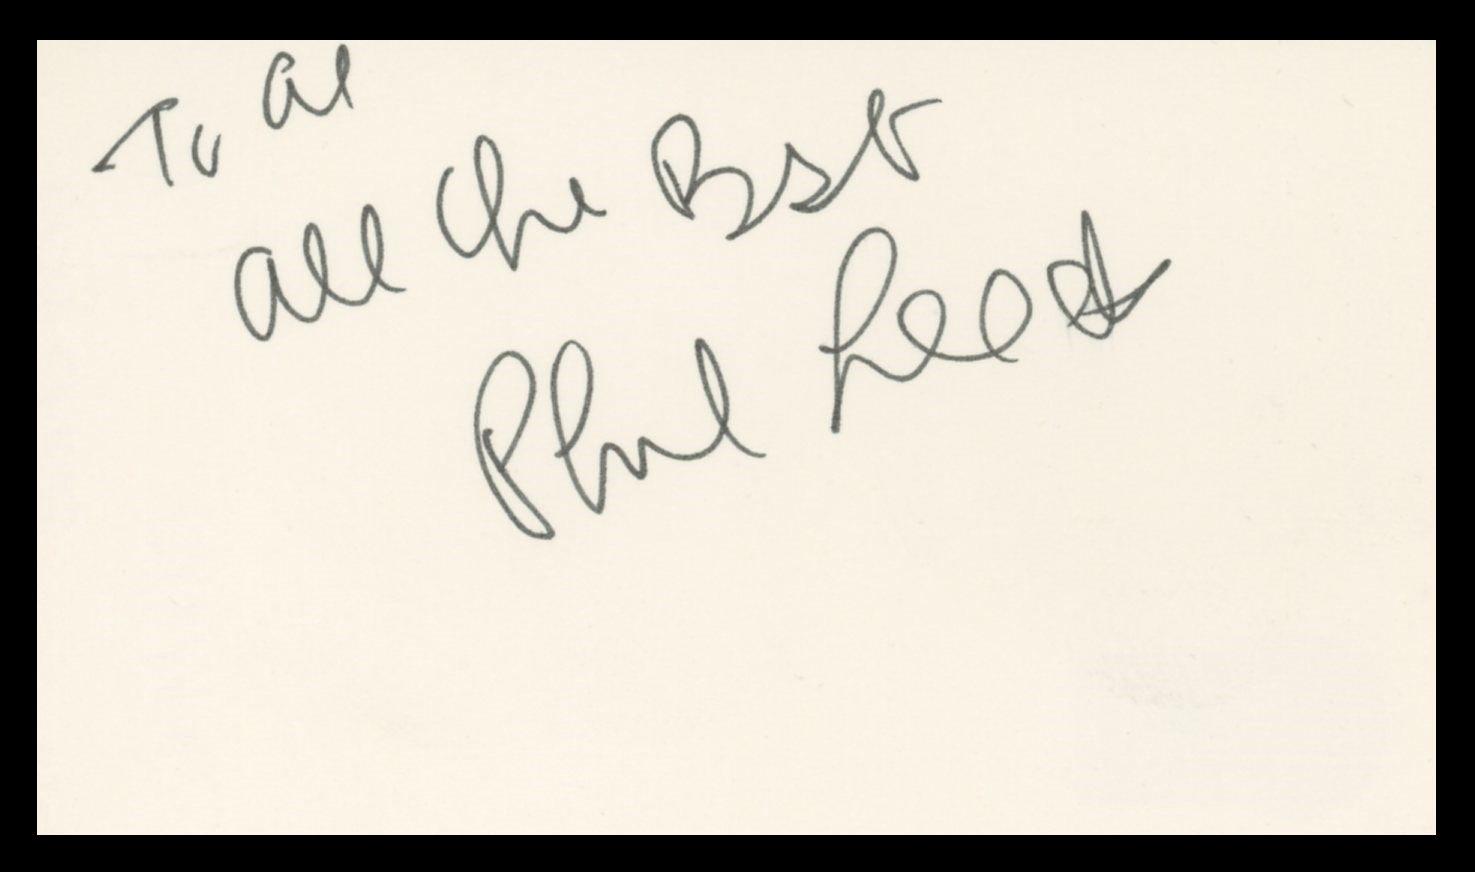 To Al
All the Best
Phil Leeds